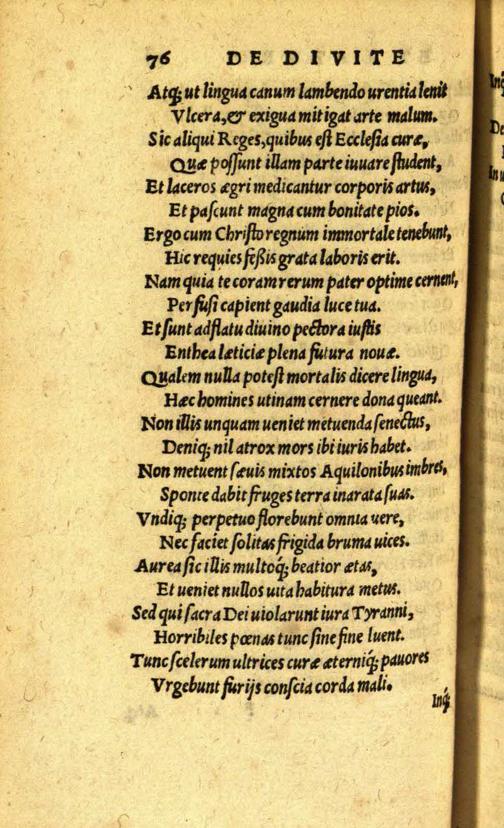 76 DE DIVITE
Atq; ut lingua canum lambendo urentia lenit
Vlcera, & exigua mitigat arte malum.
Sic aliqui Reges, quibus est Ecclesia curæ,
Quæ possunt illam parte iuuare student,
Et laceros ægri medicantur corporis artus,
Et pascunt magna cum bonitate pios.
Ergo cum Christo regnum immortale tenebunt,
Hic requies feßis grata laboris erit.
Nam quia te coram rerum pater optime cernent,
Perfusi capient gaudia luce tua.
Et sunt adflatu diuino pectora iustis
Enthea læticiæ plena futura nouæ.
Qualem nulla potest mortalis dicere lingua,
Hæc homines utinam cernere dona queant.
Non illis unquam ueniet metuenda senectus,
Deniq; nil atrox mors ibi iuris habet.
Non metuent sæuis mixtos Aquilonibus imbres,
Sponte dabit fruges terra inarata suas.
Vndiq; perpetuo florebunt omnia uere,
Nec faciet solitas frigida bruma uices.
Aurea sic illis multoq́; beatior ætas,
Et ueniet nullos uita habitura metus.
Sed qui sacra Dei uiolarunt iura Tyranni,
Horribiles pœnas tunc sine fine luent.
Tunc scelerum ultrices curæ æterniq́; pauores
Vrgebunt furijs conscia corda mali.
Inq́;